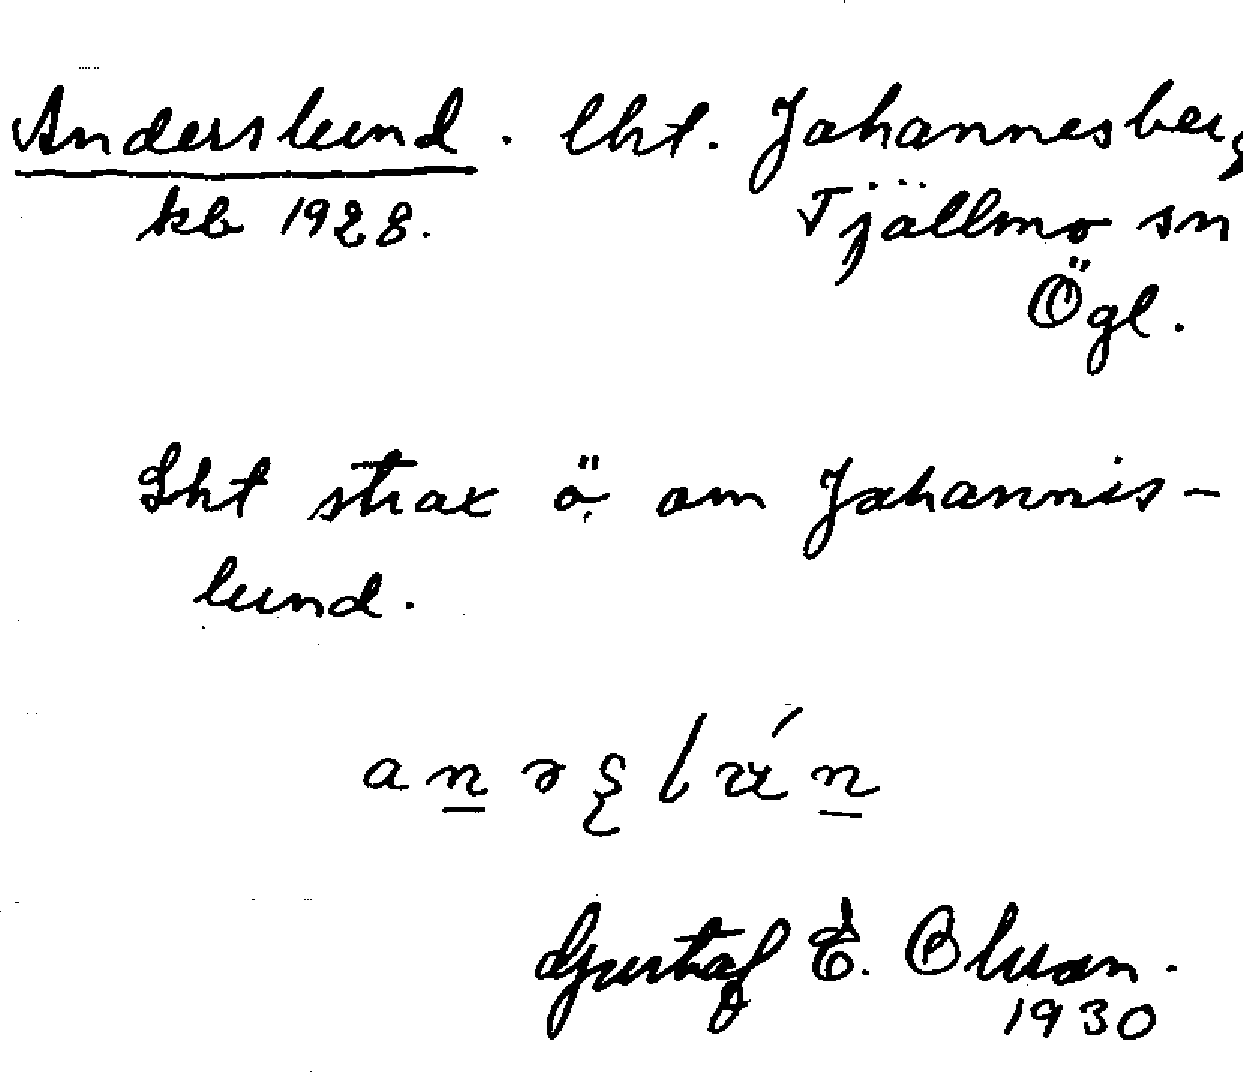 Anderslund. lht. Johannesberg
kb 1928. Tjällmo sn
Ögl.
Lht strax ö om Johannis-
lund.
Gustaf E. Olsson.
1930